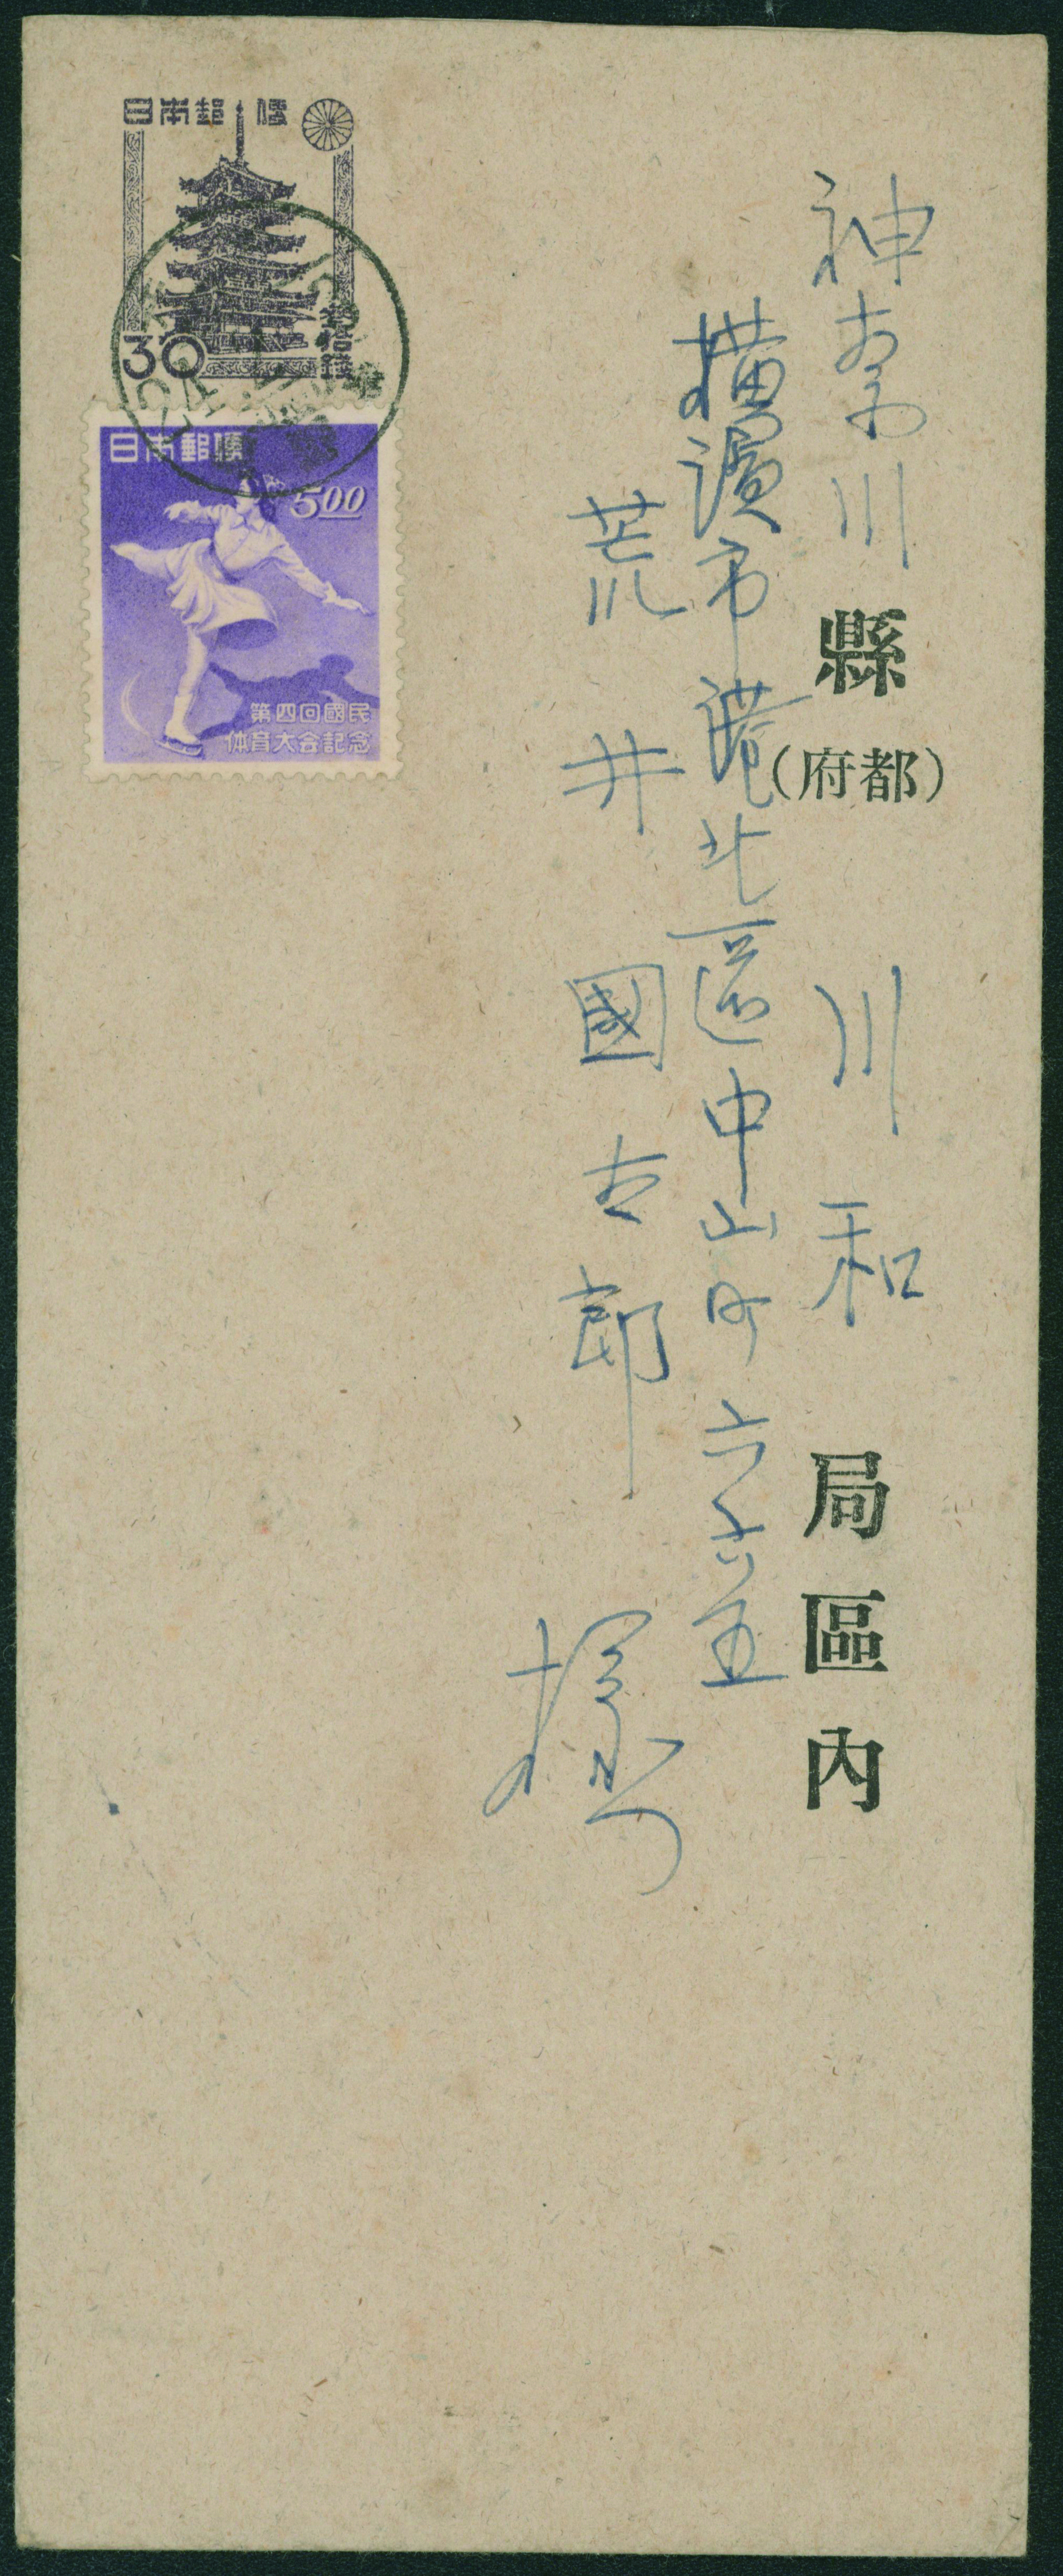 神奈川縣(府都) 川和局區内
橫濱市港北區中山町六六五
荒井國吉郎様
日本郵便
30
参拾錢
日本郵便
5.00
第四回國民
体育大会記念